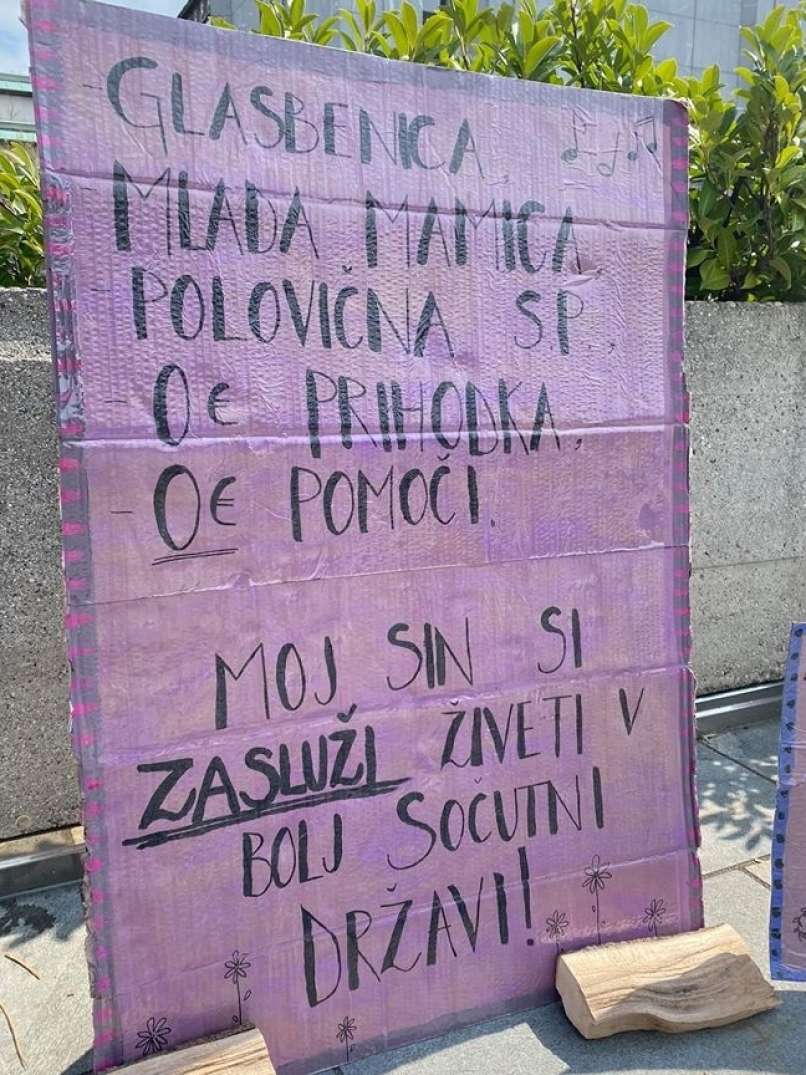 - GLASBENICA,
- MLADA MAMICA,
- POLOVIČNA S.P.,
- 0€ PRIHODKA,
- 0€ POMOČI.
MOJ SIN SI
ZASLUŽI ŽIVETI V
BOLJ SOČUTNI
DRŽAVI!